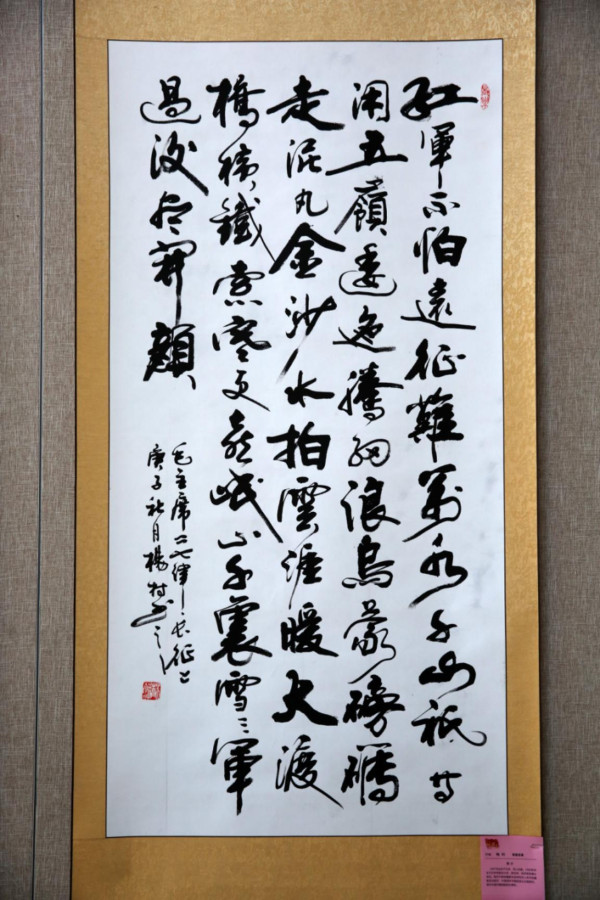 紅軍不怕遠征難萬水千山祇等
閑五嶺逶迤騰細浪烏蒙磅礴
走泥丸金沙水拍雲涯暖大渡
橋橫鐵索寒更喜岷山千裏雪三軍
過後盡開顏
毛主席《七律－长征》
庚子秋月楊村书之